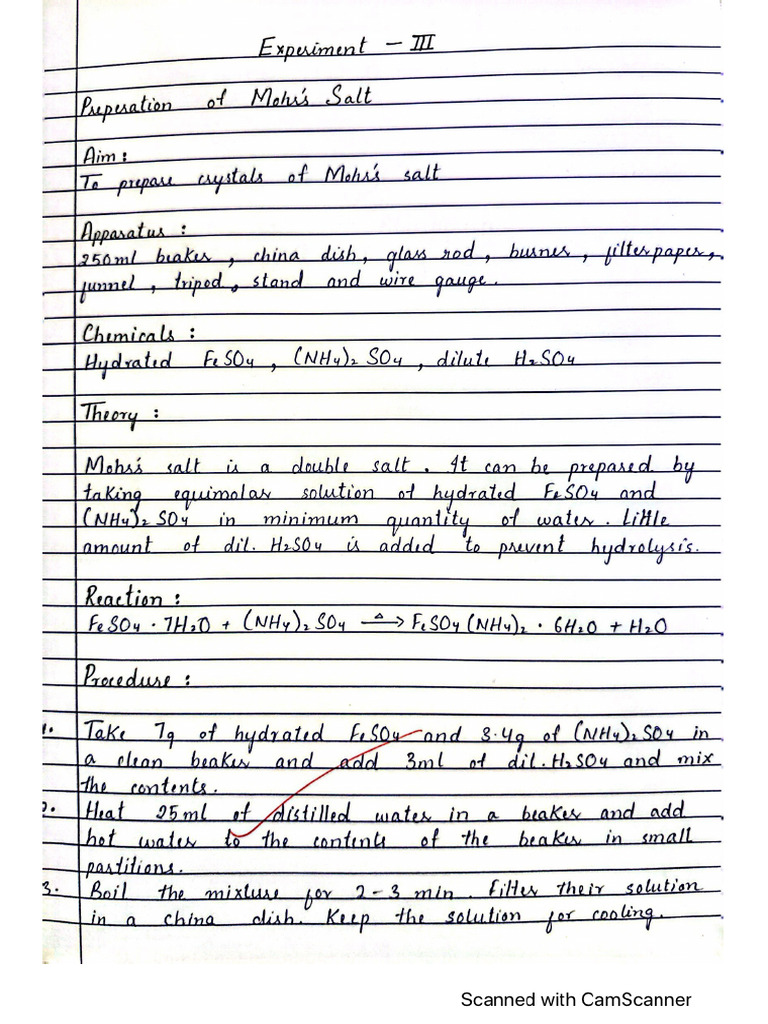 Experiment - III
Preperation of Mohr's Salt
Aim :
To prepare crystals of Mohr's salt
Apparatus :
250ml beaker , china dish , glass rod , burner , filterpaper ,
funnel , tripod , stand and wire gauge .
Chemicals :
Hydrated FeSO4 , (NH4)2 SO4 , dilute H2SO4
Theory :
Mohr's salt is a double salt . It can be prepared by
taking equimolar solution of hydrated FeSO4 and
(NH4)2 SO4 in minimum quantity of water . Little
amount of dil. H2SO4 is added to prevent hydrolysis.
Reaction :
FeSO4 · 7H2O + (NH4)2 SO4 —Δ→ FeSO4 (NH4)2 · 6H2O + H2O
Procedure :
1. Take 7g of hydrated FeSO4 and 3.4g of (NH4)2 SO4 in
a clean beaker and add 3ml of dil. H2SO4 and mix
the contents .
2. Heat 25ml of distilled water in a beaker and add
hot water to the contents of the beaker in small
partitions.
3. Boil the mixture for 2-3 min . Filter their solution
in a china dish. Keep the solution for cooling.
Scanned with CamScanner